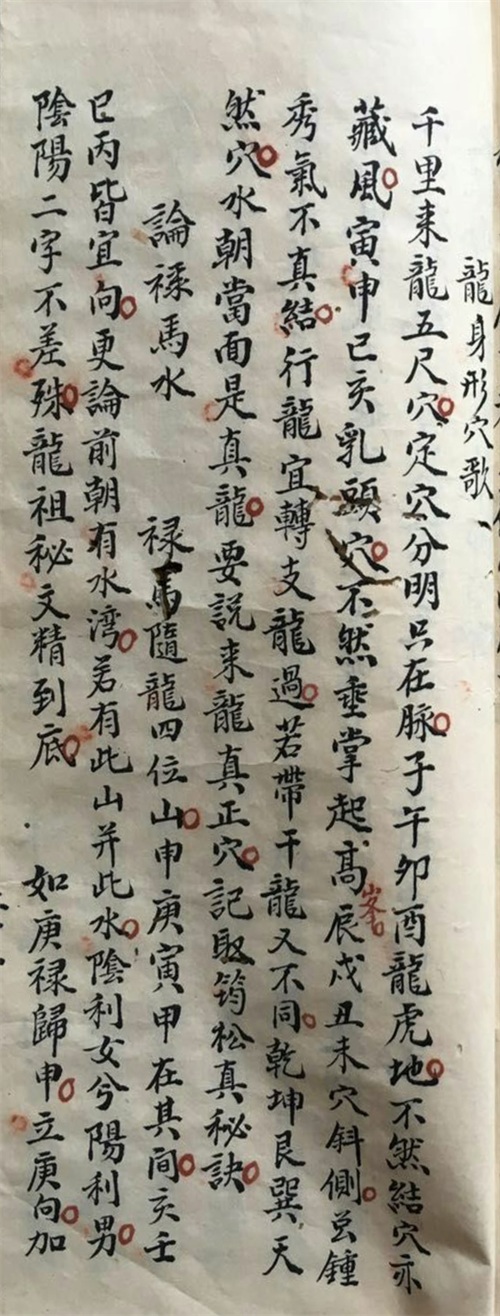 龍身形穴歌
千里来龍五尺穴定穴分明只在脉子午卯酉龍虎地不然結穴亦
藏風寅申巳亥乳頭穴不然垂掌起高峯辰戌丑未穴斜側
秀氣不真結行龍宜轉支龍過若帶干龍又不同乾坤艮巽天
然穴水朝當面是真龍要說来龍真正穴記取筠松真秘訣
論祿馬水 禄馬隨龍四位山申庚寅甲在其間亥壬
巳丙皆宜向更論前朝有水湾若有此山并此水陰利女兮陽利男
陰陽二字不差殊龍祖秘文精到底 如庚禄歸申立庚向加